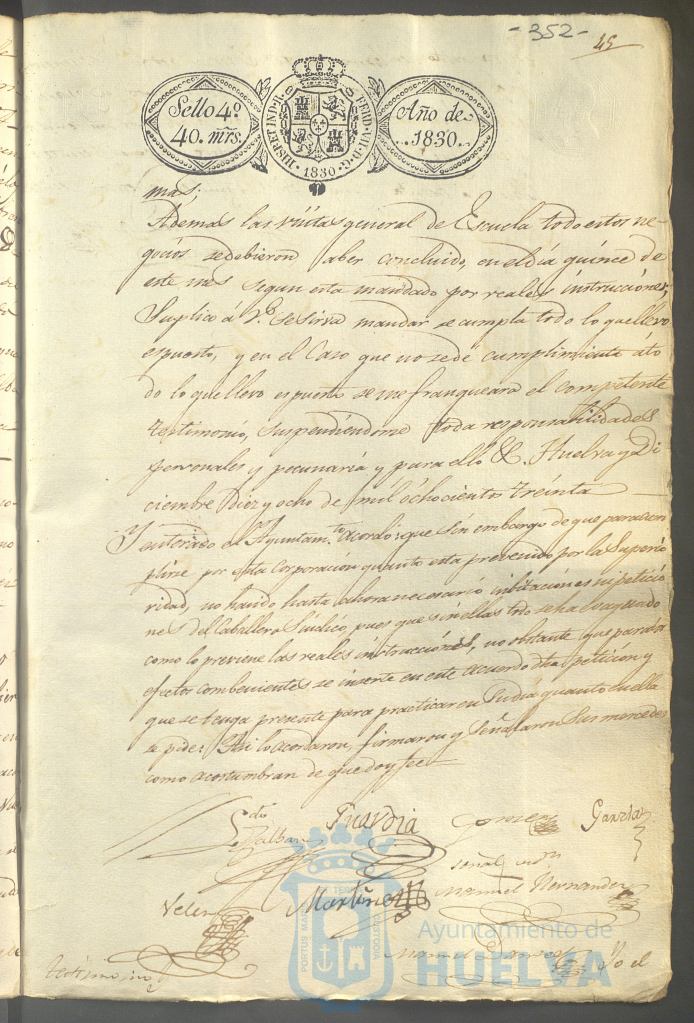 -352-
45
Sello 4º
40. mrs.
HISP. ET IND. R.
FERD. VII. D. G.
1830
Año de
1830.
mas.
Ademas las visitas general de Escuela todo estos ne-
gocios se debieron aber concluido, en el dia quince de
este mes segun esta mandado por reales instrucciones,
Suplico á V. se sirva mandar se cumpla todo lo que llevo
espuesto, y en el Caso que no se dé cumplimiente a to
do lo que llevo espuesto se me franqueara el competente
testimonio, suspendiéndome toda responsabilidades
personales y pecunaria y para ello &. Huelva y Di
ciembre Diez y ocho de mil ochocientos treinta
Y enterado el Ayuntam.to acordó: que sin embargo de que para cum
plirse por esta Corporacion quanto esta prevenido por la Superio
ridad, no havido hasta ahora necesario inbitaciones ni peticio
nes del Caballero Sindico, pues que sin ellas todo se há evaquado
como lo previene las reales instrucciones, no obstante que para los
efectos combenientes se inserte en este acuerdo dha petición y
que se tenga presente para practicar en su dia quanto en ella
se pide: Asi lo acordaron, firmaron y señalaron sus mercedes
como acostumbran de que doy fee
Guardia
Garzia
Velez
Martinez
Manuel Hernandez
Manuel
Yo el
testimonio
PORTUS MARIS
ET TERRAE
CUSTODIA
Ayuntamiento de
HUELVA